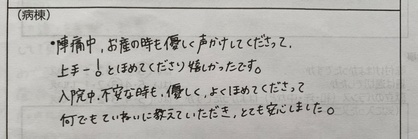 (病棟)
•陣痛中、お産の時も優しく声かけしてくださって、
上手ー!とほめてくださり嬉しかったです。
入院中、不安な時も、優しく、よくほめてくださって
何でもていねいに教えていただき、とても安心しました。